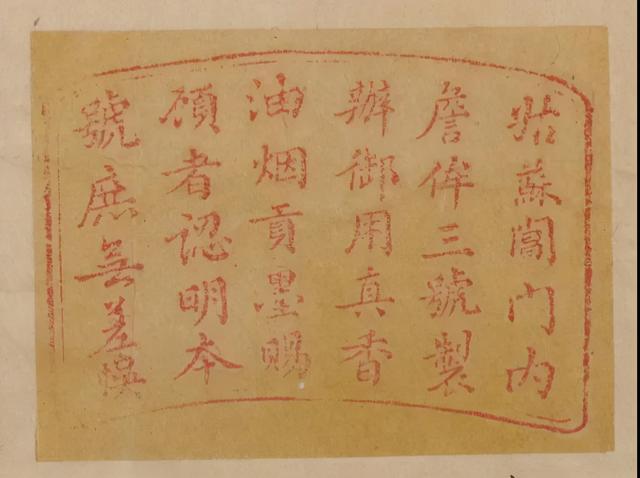 姑蘇閶門内
詹侔三號製
辦御用真香
油烟貢墨賜
顧者認明本
號庶無差悞